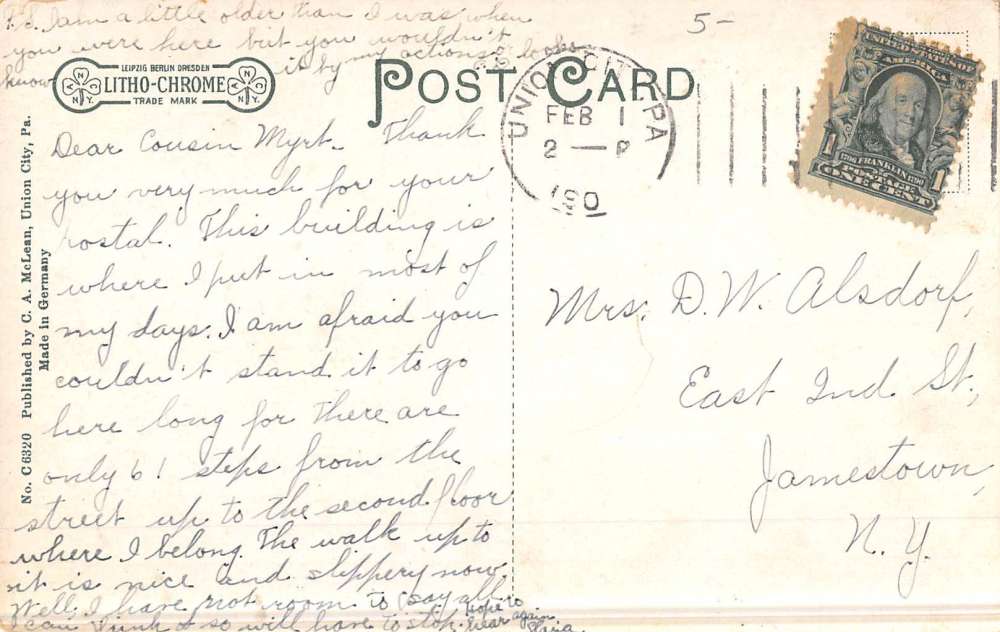 P.S. I am a little older than I was when
you were here but you wouldn't
know it by my actions or looks
5-
LEIPZIG BERLIN DRESDEN
LITHO-CHROME
TRADE MARK
ANC NY
ANC NY
POST CARD
UNION CITY, PA
FEB 1
2 — P
190
UNITED STATES OF
AMERICA
1706 FRANKLIN 1790
POSTAGE
1 ONE CENT 1
No. C 6320 Published by C. A. McLean, Union City, Pa.
Made in Germany
Dear Cousin Myrt. Thank
you very much for your
postal. This building is
where I put in most of
my days. I am afraid you
couldn't stand it to go
here long for there are
only 61 steps from the
street up to the second floor
where I belong. The walk up to
it is nice and slippery now.
Well, I have not room to say all
I can think & so will have to stop. Hope to
hear again
Mrs. D. W. Alsdorf,
East 2nd St.,
Jamestown,
N. Y.